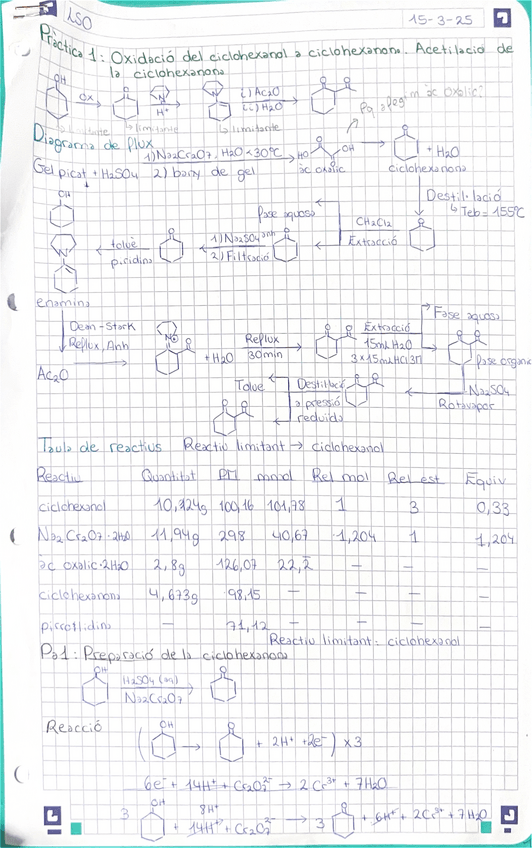 LSO
15-3-25
Pràctica 1: Oxidació del ciclohexanol a ciclohexanona. Acetilació de
la ciclohexanona
OH O N N O O
OX H+ i) Ac2O ii) H2O
limitante limitante
Diagrama de flux
1) Na2Cr2O7, H2O <30ºC HO OH
Gel picat + H2SO4 2) bany de gel àc oxàlic ciclohexanona + H2O
OH
Destil·lació
Teb = 155ºC
Fase aquosa CH2Cl2
Extracció
toluè piridina 1) Na2SO4 anh
2) Filtració
enamina
Dean-Stark
Reflux, Anh
Ac2O
+ H2O Reflux
30 min
Extracció
15ml H2O
3x15ml HCl 3M
Fase aquosa
Fase organica
Na2SO4
Rotavapor
Toluè Destil·lació
a pressió
reduida
Taula de reactius Reactiu limitant → ciclohexanol
Reactiu Quantitat PM mmol Rel mol Rel est Equiv
ciclohexanol 10,124g 100,16 101,78 1 3 0,33
Na2Cr2O7·2H2O 11,94g 298 40,67 1,204 1 1,204
àc oxàlic·2H2O 2,8g 126,07 22,2 — — —
ciclohexanona 4,673g 98,15 — — — —
pirrolidina — 71,12 — — —
Reactiu limitant: ciclohexanol
Pa1: Preparació de la ciclohexanona
OH H2SO4 (aq) O
Na2Cr2O7
Reacció
OH O
( → + 2H+ + 2e-) x3
6e- + 14H+ + Cr2O7 2- → 2Cr3+ + 7H2O
OH 8H+ O
3 + 14H+ + Cr2O7 2- → 3 + 6H+ + 2Cr3+ + 7H2O